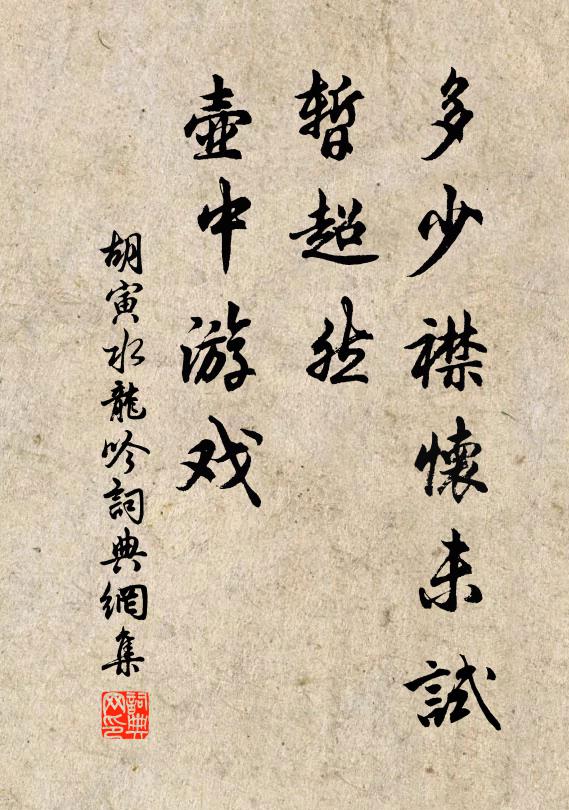 多少襟懷未試
暫超然
壺中游戏
胡寅水龍吟詞典網集
詞典网印